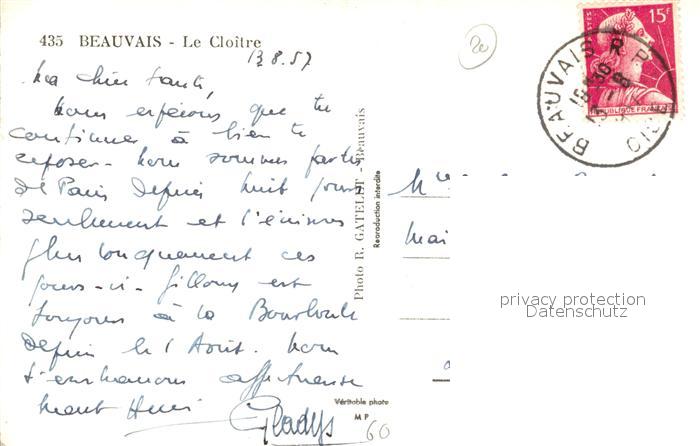 435 BEAUVAIS - Le Cloître
13.8.57
20
15F
POSTES
REPUBLIQUE FRANÇAISE
BEAUVAIS R.P.
OISE
Ma chère Tante,
Nous espérons que tu
continues à bien te
reposer - Nous sommes partis
de Paris depuis huit jours
seulement et t'écrirons
plus longuement ces
jours-ci - est
toujours à la Bourboule
depuis le 1 Août. Nous
t'embrassons affectueuse
ment Henri
Gladys
Photo R. GATELET - Beauvais
Reproduction interdite
Mai
privacy protection
Datenschutz
Véritable photo
M P
60